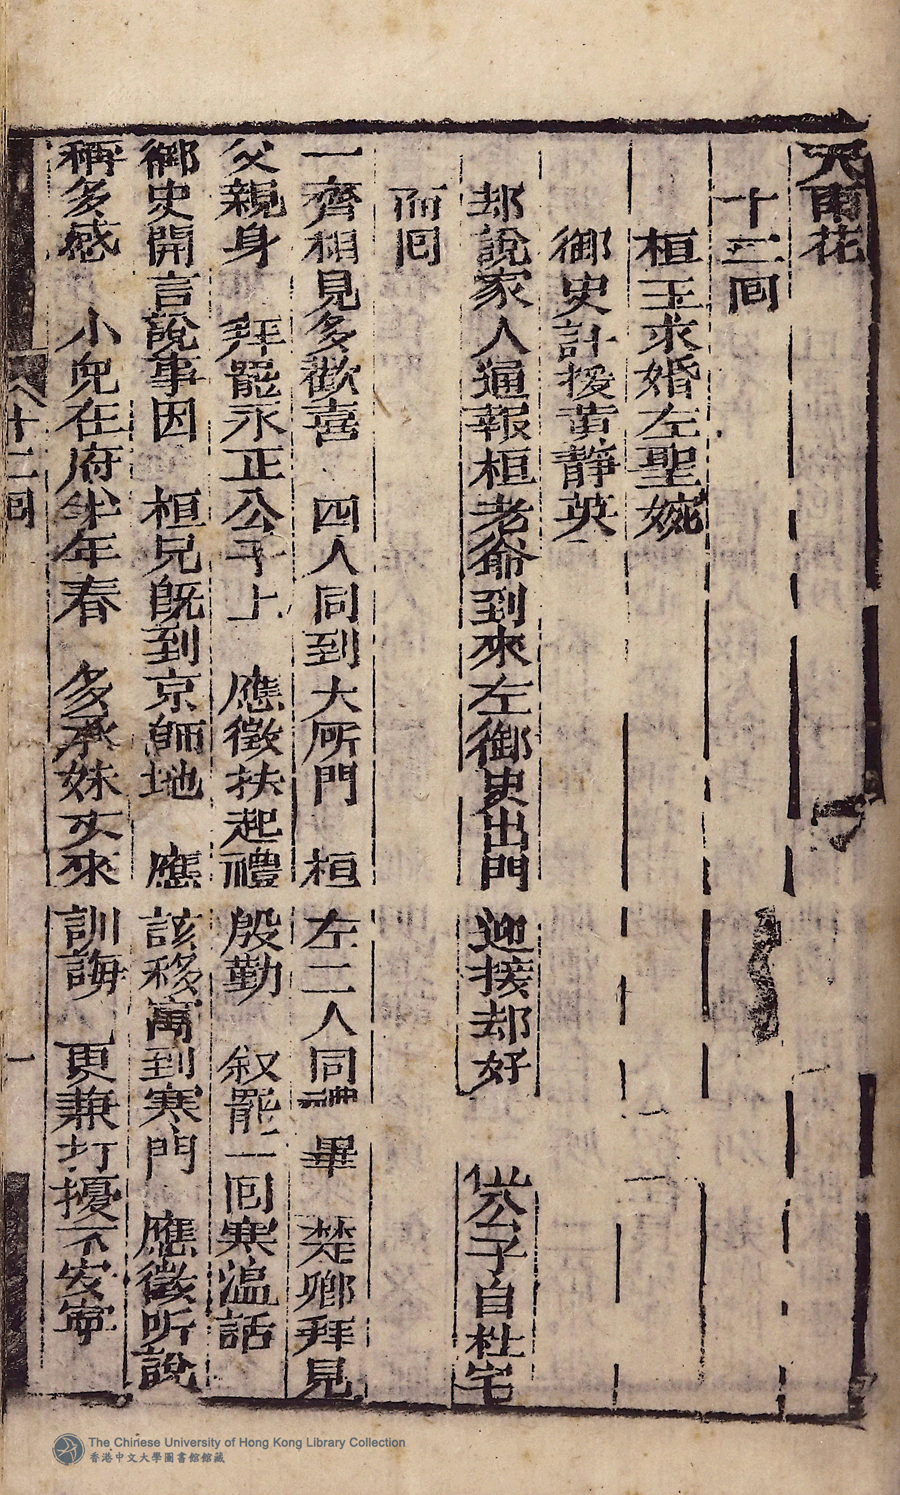 天雨花
十二回
桓玉求婚左聖婉
御史計援黄靜英
却說家人通報桓老爺到來左御史出門迎接却好 公子自杜宅
而回
一齊相見多歡喜 四人同到大所門 桓左二人同禮畢 楚卿拜見
父親身 拜罷永正公子上 應徵扶起禮殷勤 叙罷一回寒溫話
御史開言說事因 桓兄既到京師地 應該移寓到寒門 應徵听說
稱多感 小兒在府半年春 多承妹丈來訓誨 更兼打擾不安寧
十二回
一
The Chinese University of Hong Kong Library Collection
香港中文大學圖書館館藏